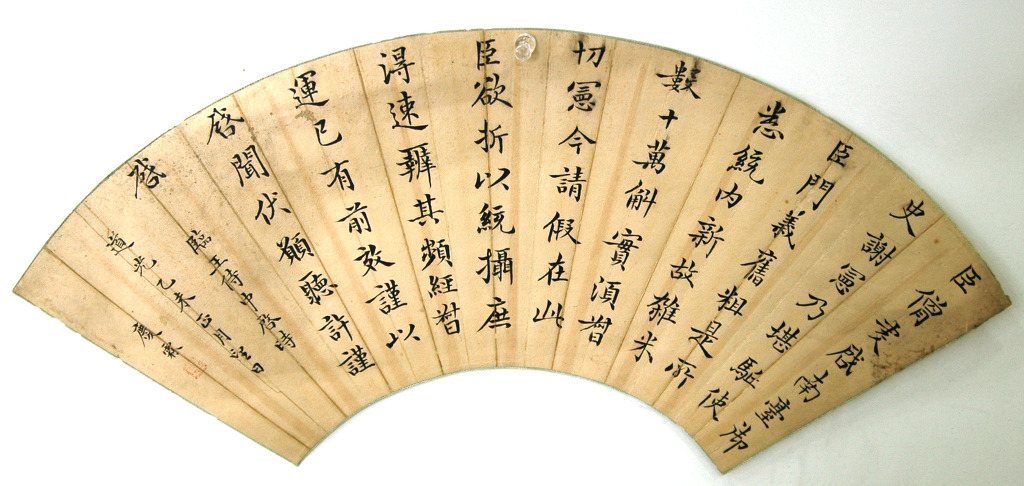 臣僧虔啟南臺御
史謝憲乃堪駈使
臣門義舊粗是所
悉統内新故雜米
數十萬斛實須督
切憲今請假在此
臣欲折以統攝庶
得速辦其頻經督
運已有前效謹以
啓聞伏願聽許謹
啓
臨王侍中啓時
道光乙未正月望日